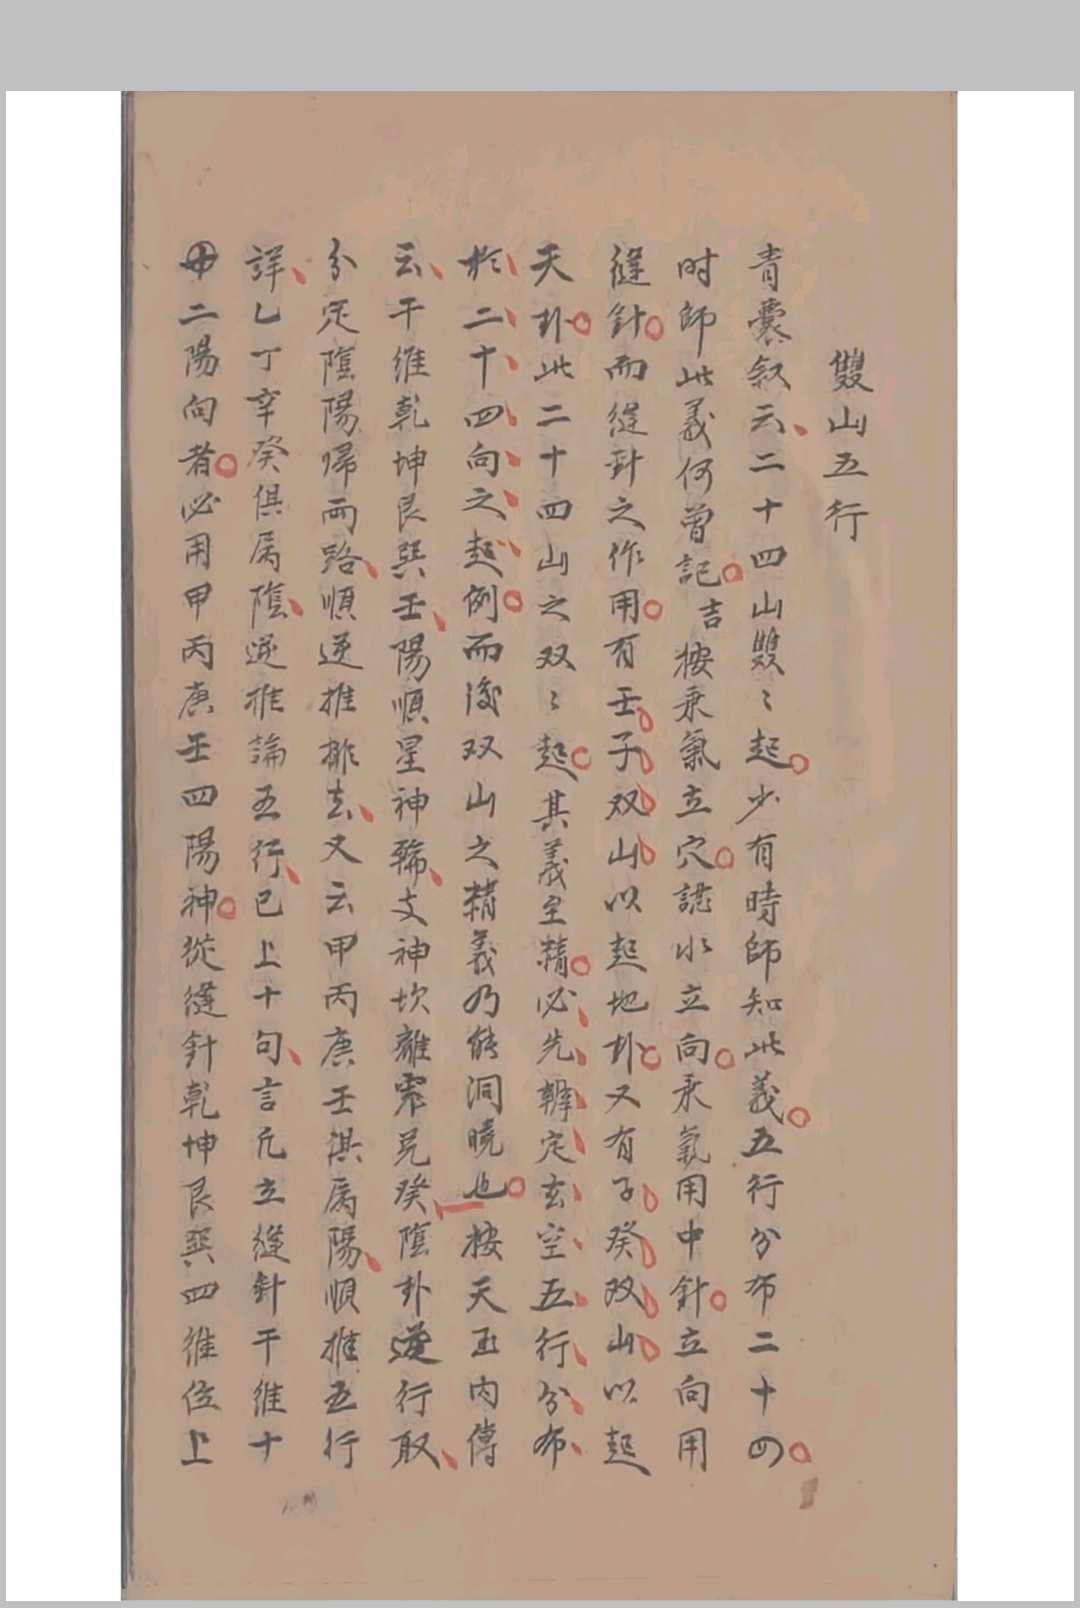 雙山五行
青囊叙云二十四山雙〻起少有時師知此義五行分布二十四
时師此義何曾記吉按乘氣立穴認水立向乘氣用中針立向用
縫針而縫針之作用有壬子双山以起地卦又有子癸双山以起
天卦此二十四山之双〻起其義至精必先辨定玄空五行分布
於二十四向之起例而後双山之精義乃能洞曉也按天玉内傳
云干維乾坤艮巽壬陽順星神輪支神坎離震兑癸陰卦逆行取
分定陰陽歸两路順逆推排去又云甲丙庚壬俱属陽順推五行
詳乙丁辛癸俱属陰逆推論五行已上十句言凡立縫針干維十
二陽向者必用甲丙庚壬四陽神從縫針乾坤艮巽四維位上